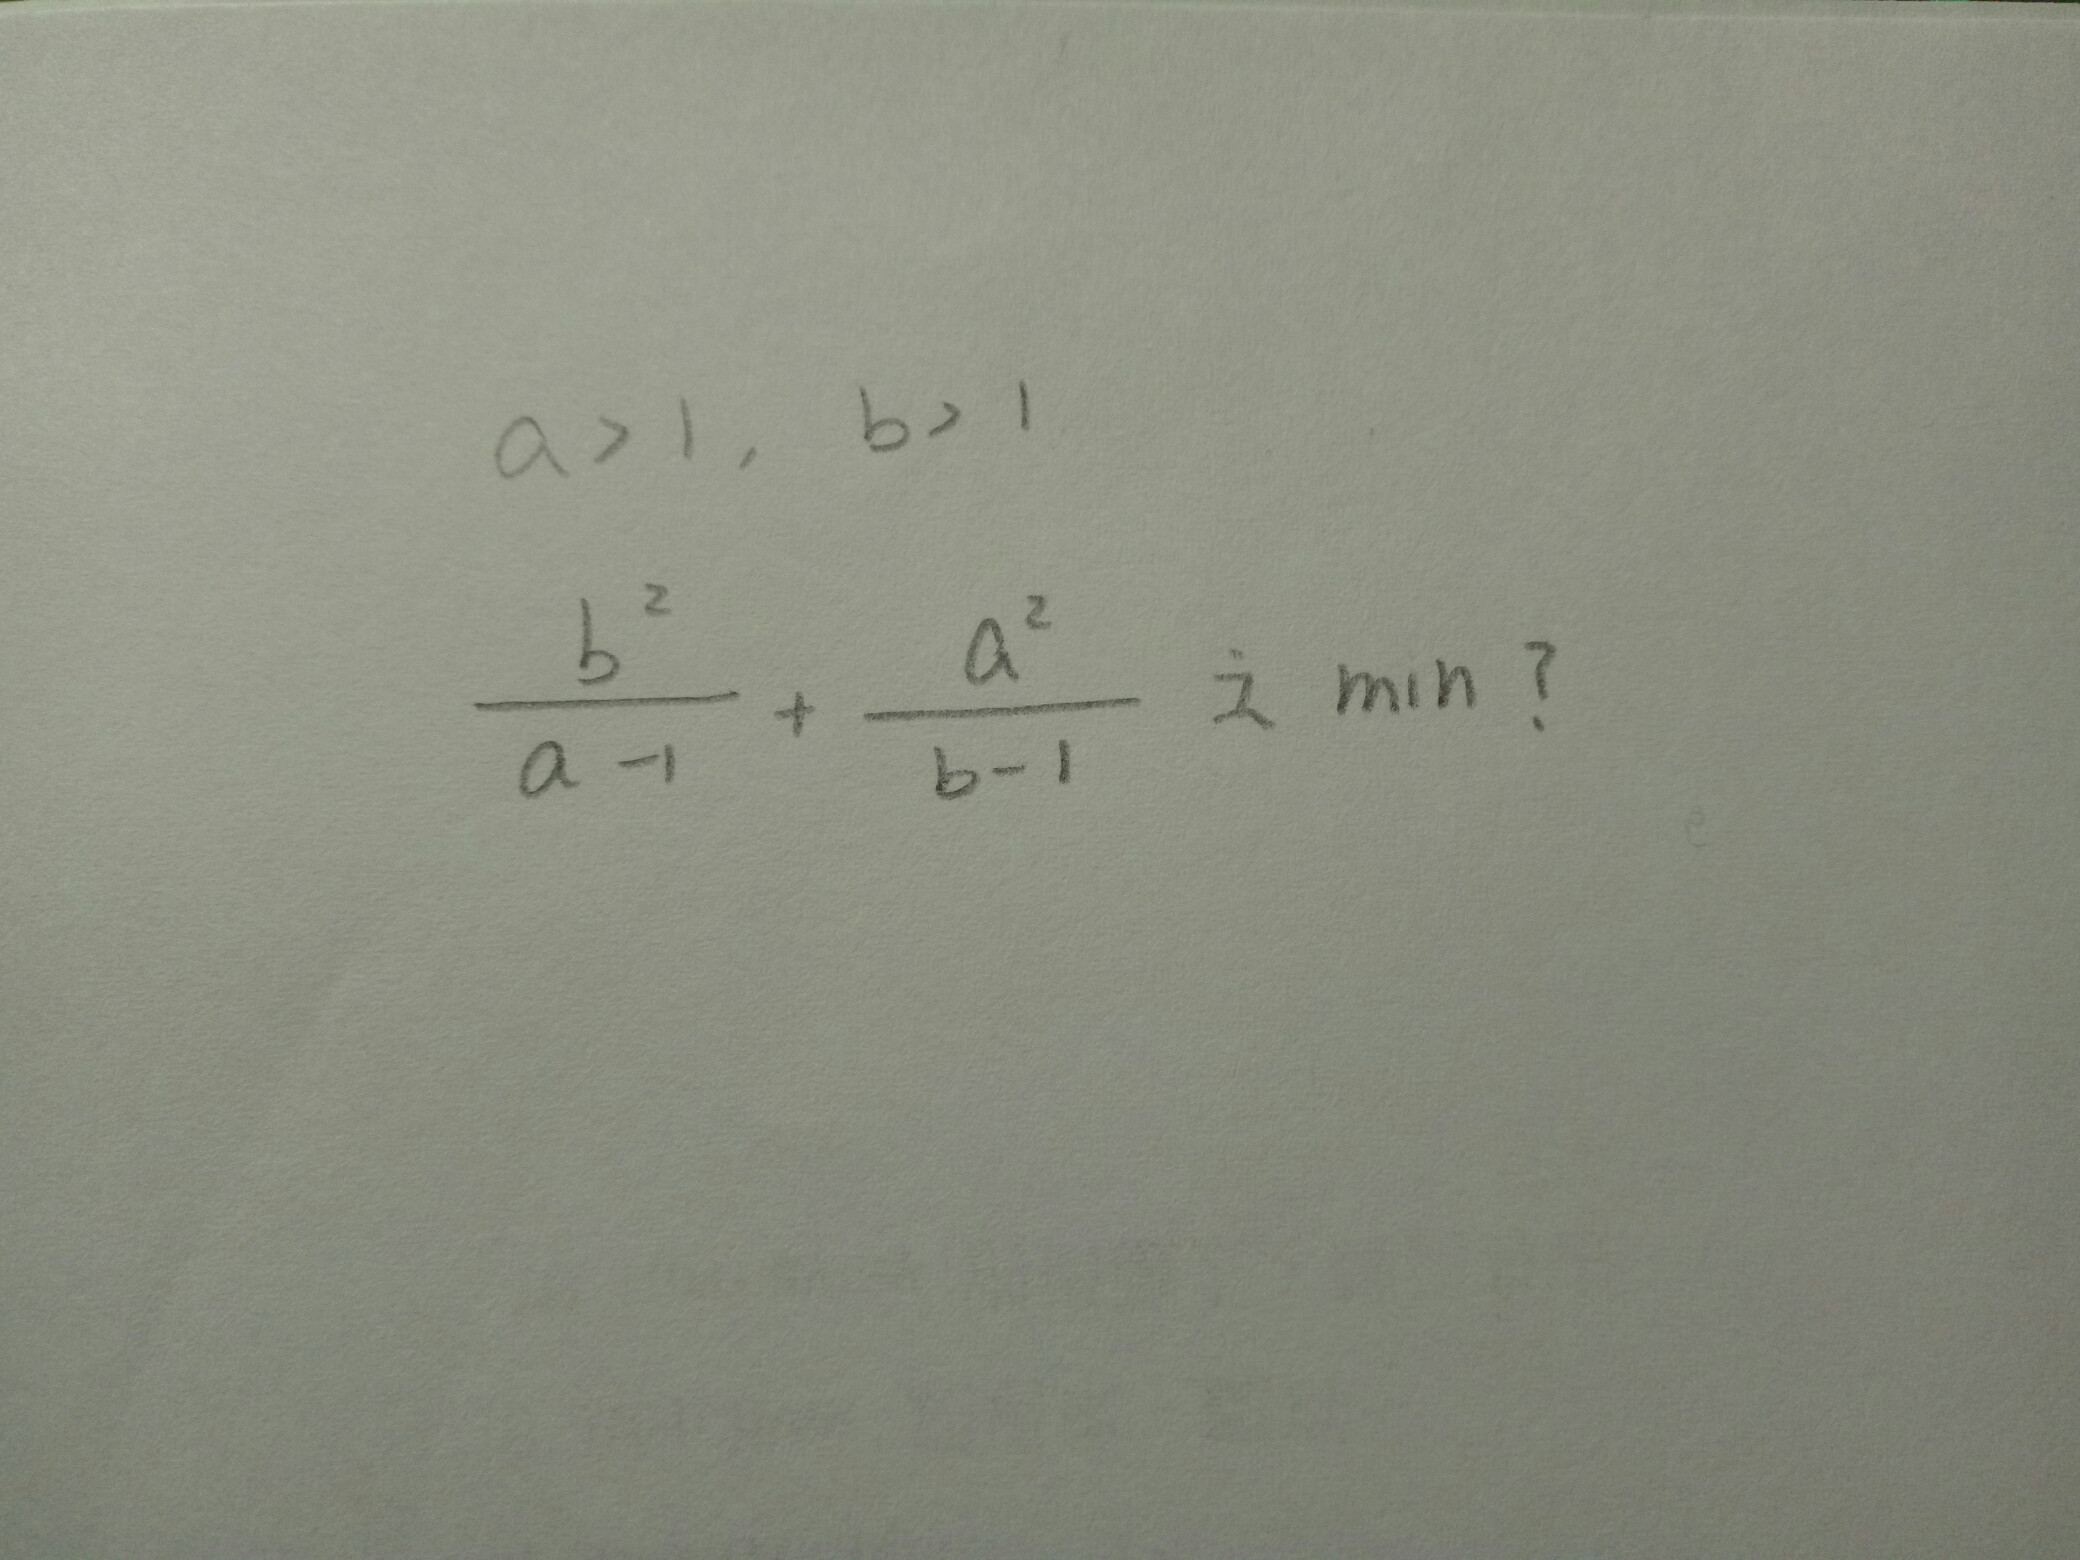 a > 1, b > 1
b²/(a-1) + a²/(b-1) 之 min?